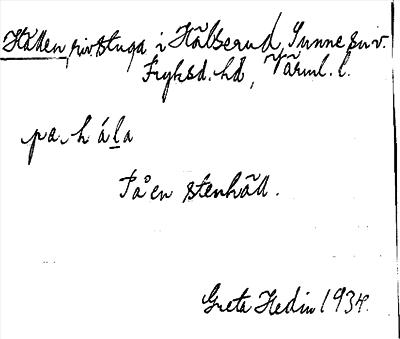 Hällen, rivstuga i Hälserud, Sunne sn v.
Fryksd. hd, Värml. l.
pa hála
På en stenhäll.
Greta Hedin 1934.